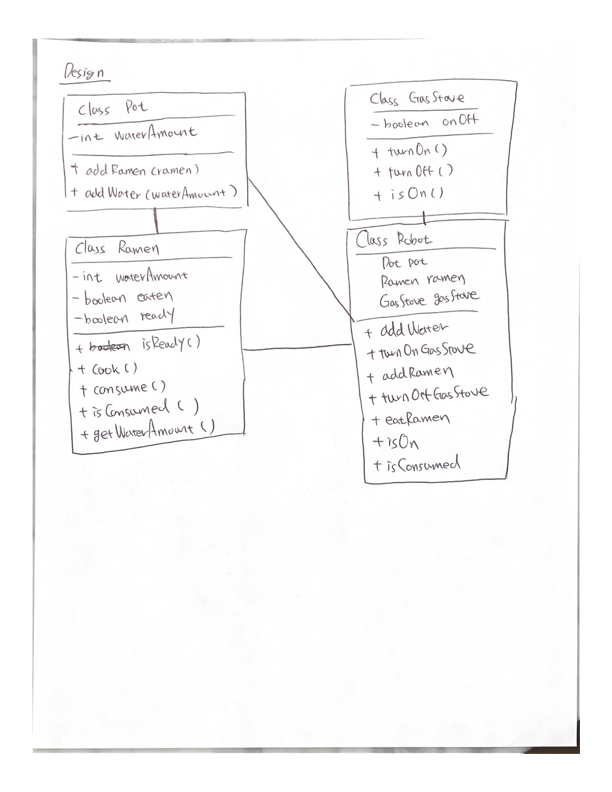 Design
Class Pot
- int waterAmount
+ addRamen (ramen)
+ addWater (waterAmount)
Class Ramen
- int waterAmount
- boolean eaten
- boolean ready
+ boolean isReady()
+ cook()
+ consume()
+ isConsumed ( )
+ getWaterAmount ()
Class GasStove
- boolean onOff
+ turnOn()
+ turnOff()
+ isOn()
Class Robot
Pot pot
Ramen ramen
GasStove gasStove
+ addWater
+ turnOnGasStove
+ addRamen
+ turnOffGasStove
+ eatRamen
+ isOn
+ isConsumed